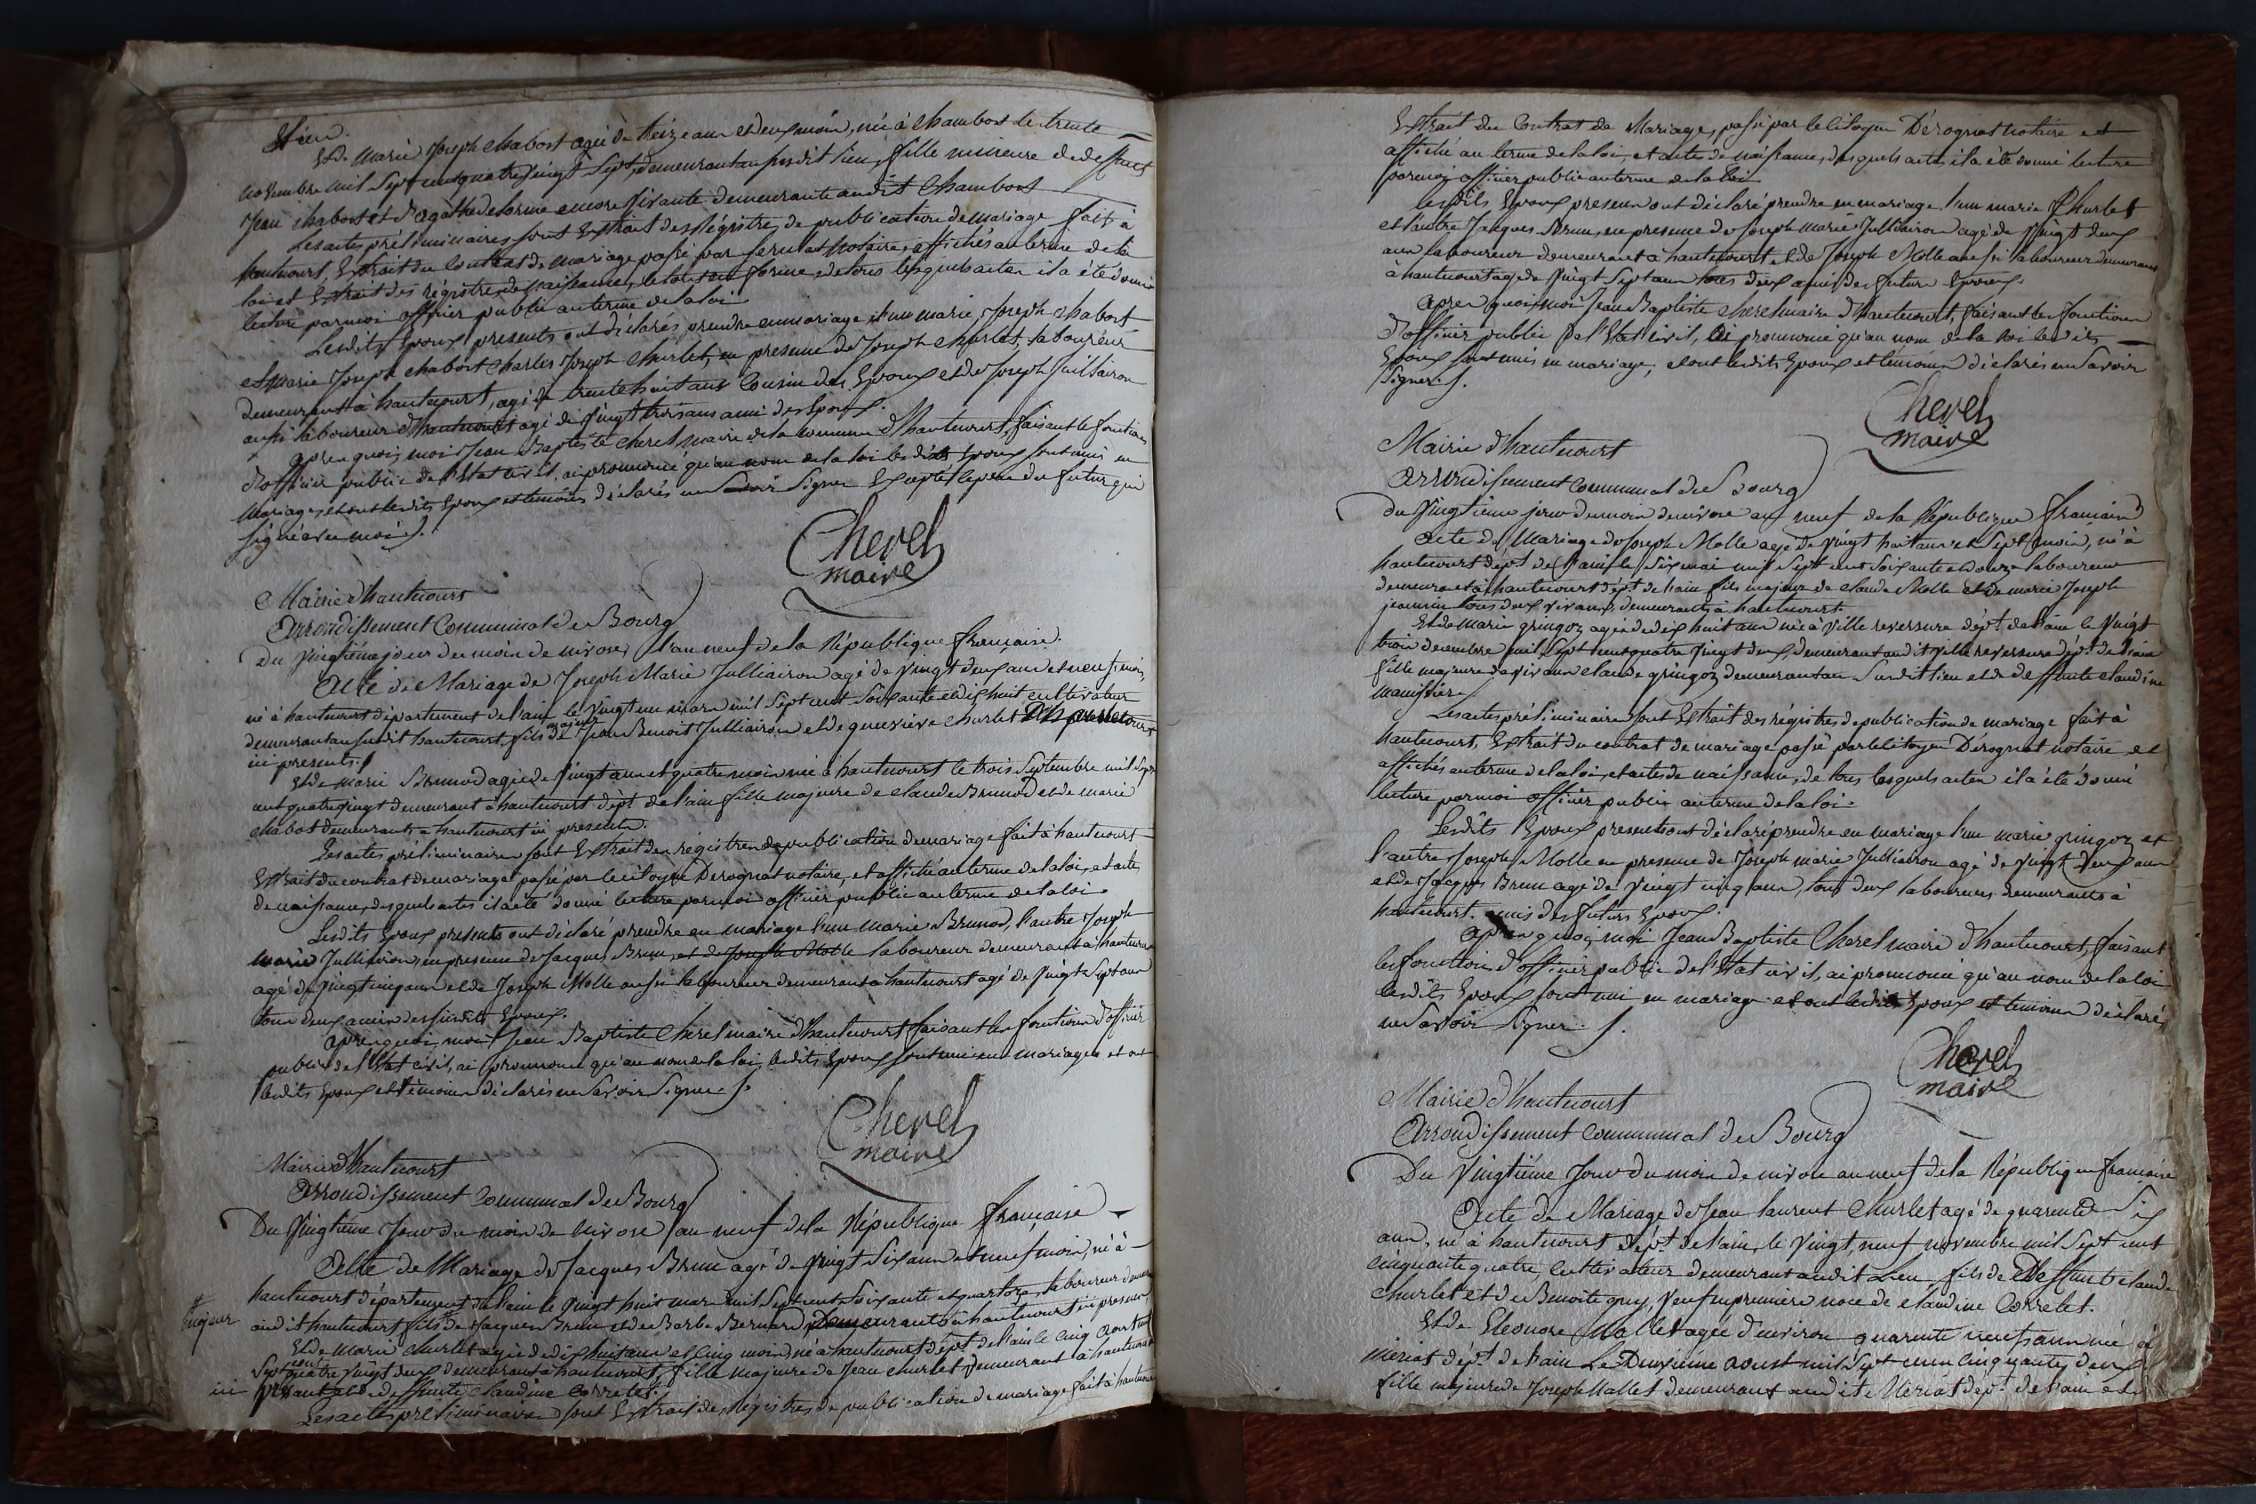 lieu.
Et de Marie Joseph chabost agée de treize ans et deux mois, née à chambost le trente
novembre mil sept cent quatre vingt sept, demeurant au susdit lieu, fille mineure de deffunct
Jean chabost et d'agathe delorme encore vivante demeurante au dit chambost
Les actes préliminaires sont Extrait des Régistres de publication de mariage fait à
hautecourt, Extrait du Contrat de mariage passé par notaire, affichés au terme de la
loi et Extrait des régistres de naissances, le tout en forme, de tous lesquels actes il a été donné
lecture par moi officier public au terme de la loi
Lesdits Epoux presents ont déclarés prendre en mariage l'une marie Joseph chabost
et Marie Joseph chabost Charles Joseph Churlet, en presence de Joseph Churlet, laboureur
demeurant à hautecourt, agé de trente huit ans Cousin des Epoux et de Joseph Juilliairon
aussi laboureur d'hautecourt agé de vingt trois ans ami des Epoux.
après quoi, moi Jean Baptiste Cherel Maire de la commune d'Hautecourt, faisant le fonctions
d'officier public de l'Etat civil, ai prononcé qu'au nom de la loi les dits Epoux sont unis en
mariage, et ont lesdits Epoux et témoins déclarés ne Savoir Signer Excepté le père du futur qui
signé avec moi.
Cherel
maire
Mairie d'hautecourt
Arrondissement Communal de Bourg
Du vingtième jour du mois de nivose, l'an neuf de la République française.
Acte de Mariage de Joseph Marie Julliairon agé de vingt deux ans et neuf mois,
né à hautecourt département de l'ain le vingt un mars mil sept cent soixante et dix huit cultivateur
majeur
demeurant au susdit hautecourt fils de Jean Benoit Julliairon et de genevieve Churlet d'hautecourt
ici presents.
Et de Marie Brunod agée de vingt ans et quatre mois née à hautecourt le trois Septembre mil sept
cent quatre vingt demeurant à hautecourt dépt de l'ain fille majeure de claude Brunod et de marie
chabot demeurants a hautecourt ici presents.
Les actes préliminaires sont Extrait des registres de publication de mariage fait à hautecourt
Extrait du contrat de mariage passé par le citoyen Derognat notaire, et affiché au terme de la loi, et actes
de naissances, desquels actes il a été donné lecture par moi officier public au terme de la loi
Lesdits Epoux presents ont déclaré prendre en mariage l'une marie Brunod, l'autre Joseph
marie Julliairon, en presence de Jacques Brun, et de Joseph Molle laboureur demeurant à hautecourt
agé de vingt cinq ans et de Joseph Molle aussi laboureur demeurant a hautecourt agé de vingt Sept ans
tous deux amis des susdits Epoux.
après quoi, moi Jean Baptiste Cherel maire d'hautecourt faisant les fonctions d'officier
public de l'Etat civil, ai prononcé qu'au nom de la loi, lesdits Epoux sont unis en mariage et ont
lesdits Epoux et témoins déclarés ne Savoir Signer
Cherel
maire
Mairie d'Hautecourt
Arrondissement Communal de Bourg
Du Vingtième Jour du mois de Nivose l'an neuf de la République française
Acte de Mariage de Jacques Brun agé de vingt Six ans et neuf mois, né à
hautecourt département de l'ain le vingt huit mars mil Sept cent soixante et quatorze, laboureur demeurant
majeur
au dit hautecourt fils de Jacques Brun et de Barbe Bernard demeurants à hautecourt ici presents
Et de Marie Churlet agée de dix huit ans et cinq mois, né à hautecourt dépt de l'ain le cinq Aout mil
cent
Sept quatre vingt deux demeurant à hautecourt, fille majeure de Jean Churlet demeurant à hautecourt
ici présent et de deffunte claudine Corretet.
Les actes préliminaires sont Extrait des Régistres de publication de mariage fait à hautecourt
Extrait du Contrat de Mariage, passé par le Citoyen Dérognat notaire et
affiché au terme de la loi, et actes de naissances, desquels actes il a été donné lecture
par moi officier public au terme de la loi
lesdits Epoux presens ont déclaré prendre en mariage l'une marie Churlet
et l'autre Jacques Brun, en presence de Joseph marie Julliairon agé de Vingt deux
ans laboureur demeurant à hautecourt, et de Joseph Molle aussi laboureur demeurant
à hautecourt agé de Vingt Sept ans tous deux amis des futurs Epoux.
après quoi, moi Jean Baptiste Cherel maire d'hautecourt, faisant les fonctions
d'officier public de l'Etat civil, ai prononcé qu'au nom de la loi lesdits
Epoux sont unis en mariage, et ont lesdits Epoux et témoins déclarés ne Savoir
Signer.
Cherel
maire
Mairie d'hautecourt
Arrondissement Communal de Bourg
Du Vingtième jour du mois de nivose an neuf de la République française
Acte de Mariage de Joseph Molle agé de vingt huit ans et Sept mois, né à
hautecourt dépt de l'ain le six mai mil sept cent soixante et douze laboureur
demeurant à hautecourt dépt de l'ain fils majeur de claude Molle et de marie Joseph
jeannin tous deux vivans, demeurants à hautecourt.
Et de Marie gringoz agée de dix huit ans née à Ville reversure dépt de l'ain le vingt
trois decembre mil Sept cent quatre Vingt deux, demeurant au dit ville reversure dépt de l'ain
fille majeure de vivans claude gringoz demeurant au Susdit lieu et de deffunte claudine
manissier
Les actes préliminaires sont Extrait des régistres de publication de mariage fait à
hautecourt, Extrait du contrat de mariage, passé par le citoyen Dérognat notaire et
affichés au terme de la loi, et actes de naissance, de tous lesquels actes il a été donné
lecture par moi officier public au terme de la loi.
Lesdits Epoux presents ont déclaré prendre en mariage l'une marie gringoz et
l'autre Joseph Molle en presence de Joseph marie Julliairon agé de vingt deux ans
et de Jacques Brun agé de vingt cinq ans, tous deux laboureurs demeurants à
hautecourt. amis des futurs Epoux.
après quoi, moi Jean Baptiste Cherel maire d'hautecourt, faisant
les fonctions d'officier public de l'Etat civil, ai prononcé qu'au nom de la loi
lesdits Epoux sont uni en mariage et ont lesdits Epoux et temoins déclarés
ne Savoir Signer.
Cherel
maire
Mairie d'hautecourt
Arrondissement Communal de Bourg
Du Vingtième Jour du mois de nivose an neuf de la République française
Acte de Mariage de Jean laurent Churlet agé de quarente Six
ans, né à hautecourt dépt de l'ain, le vingt neuf novembre mil Sept cent
cinquante quatre, cultivateur demeurant au dit Lieu fils de deffunt claude
Churlet et de Benoite guy, Veuf en première noce de claudine Corretet.
Et de Eléonore Mallet agée d'environ quarente neuf ans née à
Meriat dépt de l'ain Le Deuxième aoust mil Sept cent cinquante deux
fille majeure de Joseph Mallet demeurant au dit Mériat dépt de l'ain et de